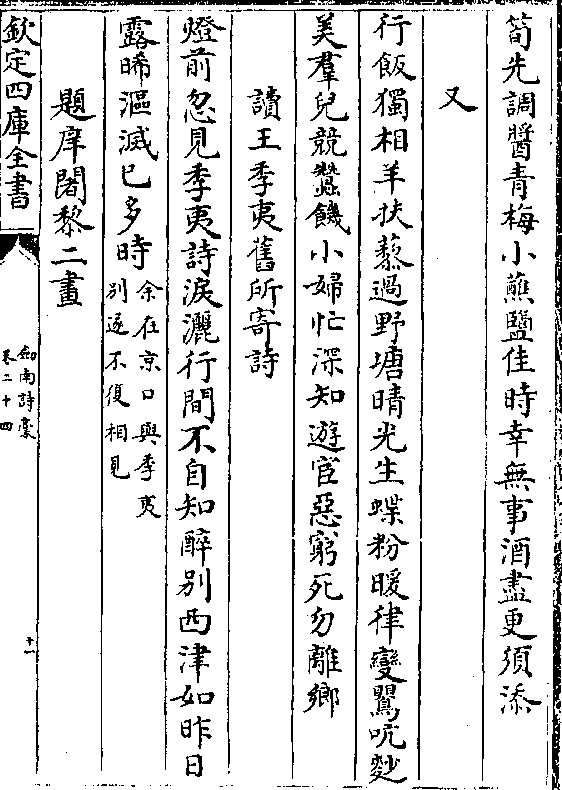 筍先調醬青梅小蘸鹽佳時幸無事酒盡更須添
又
行飯獨相羊扶藜過野塘晴光生蝶粉暖律變鶯吭麨
美羣兒競蠶饑小婦忙深知遊宦惡窮死勿離鄉
讀王季夷舊所寄詩
燈前忽見季夷詩淚灑行間不自知醉别西津如昨日
露晞漚滅已多時余在京口與季夷
别遂不復相見
題庠闍黎二畫
欽定四庫全書
劍南詩藁
卷二十四
十一